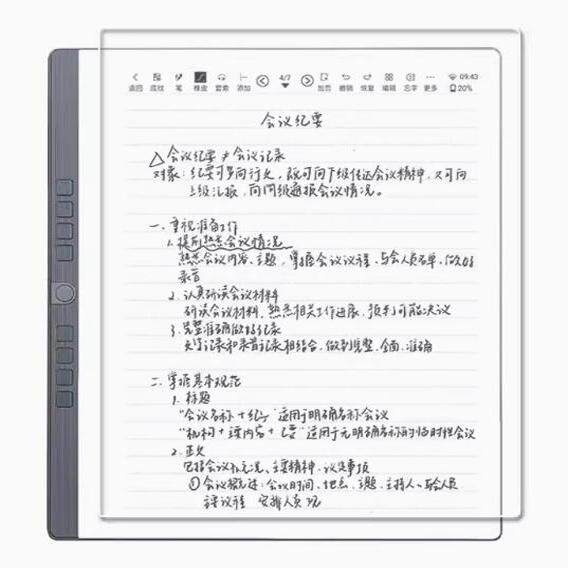 返回 底纹 笔 橡皮 套索 添加 4/7 加页 撤销 恢复 编辑 识字 更多 09:43
20%
会议纪要
△会议纪要≠会议记录
对象:纪要可多向行文,既可向下级传达会议精神,又可向
上级汇报,向同级通报会议情况。
一、重视准备工作
1.提前熟悉会议情况
熟悉会议内容、主题,掌握会议议程、与会人员名单,做好
录音
2.认真研读会议材料
研读会议材料,熟悉相关工作进展,预判可能决议
3.完整准确做好记录
文字记录和录音记录相结合,做到完整、全面、准确
二、掌握基本规范
1.标题
"会议名称+纪要"适用于明确名称会议
"机构+主要内容+纪要"适用于无明确名称的临时性会议
2.正文
包括会议概况、主要精神、议定事项
①会议概述:会议时间、地点、主题、主持人、与会人员
议程